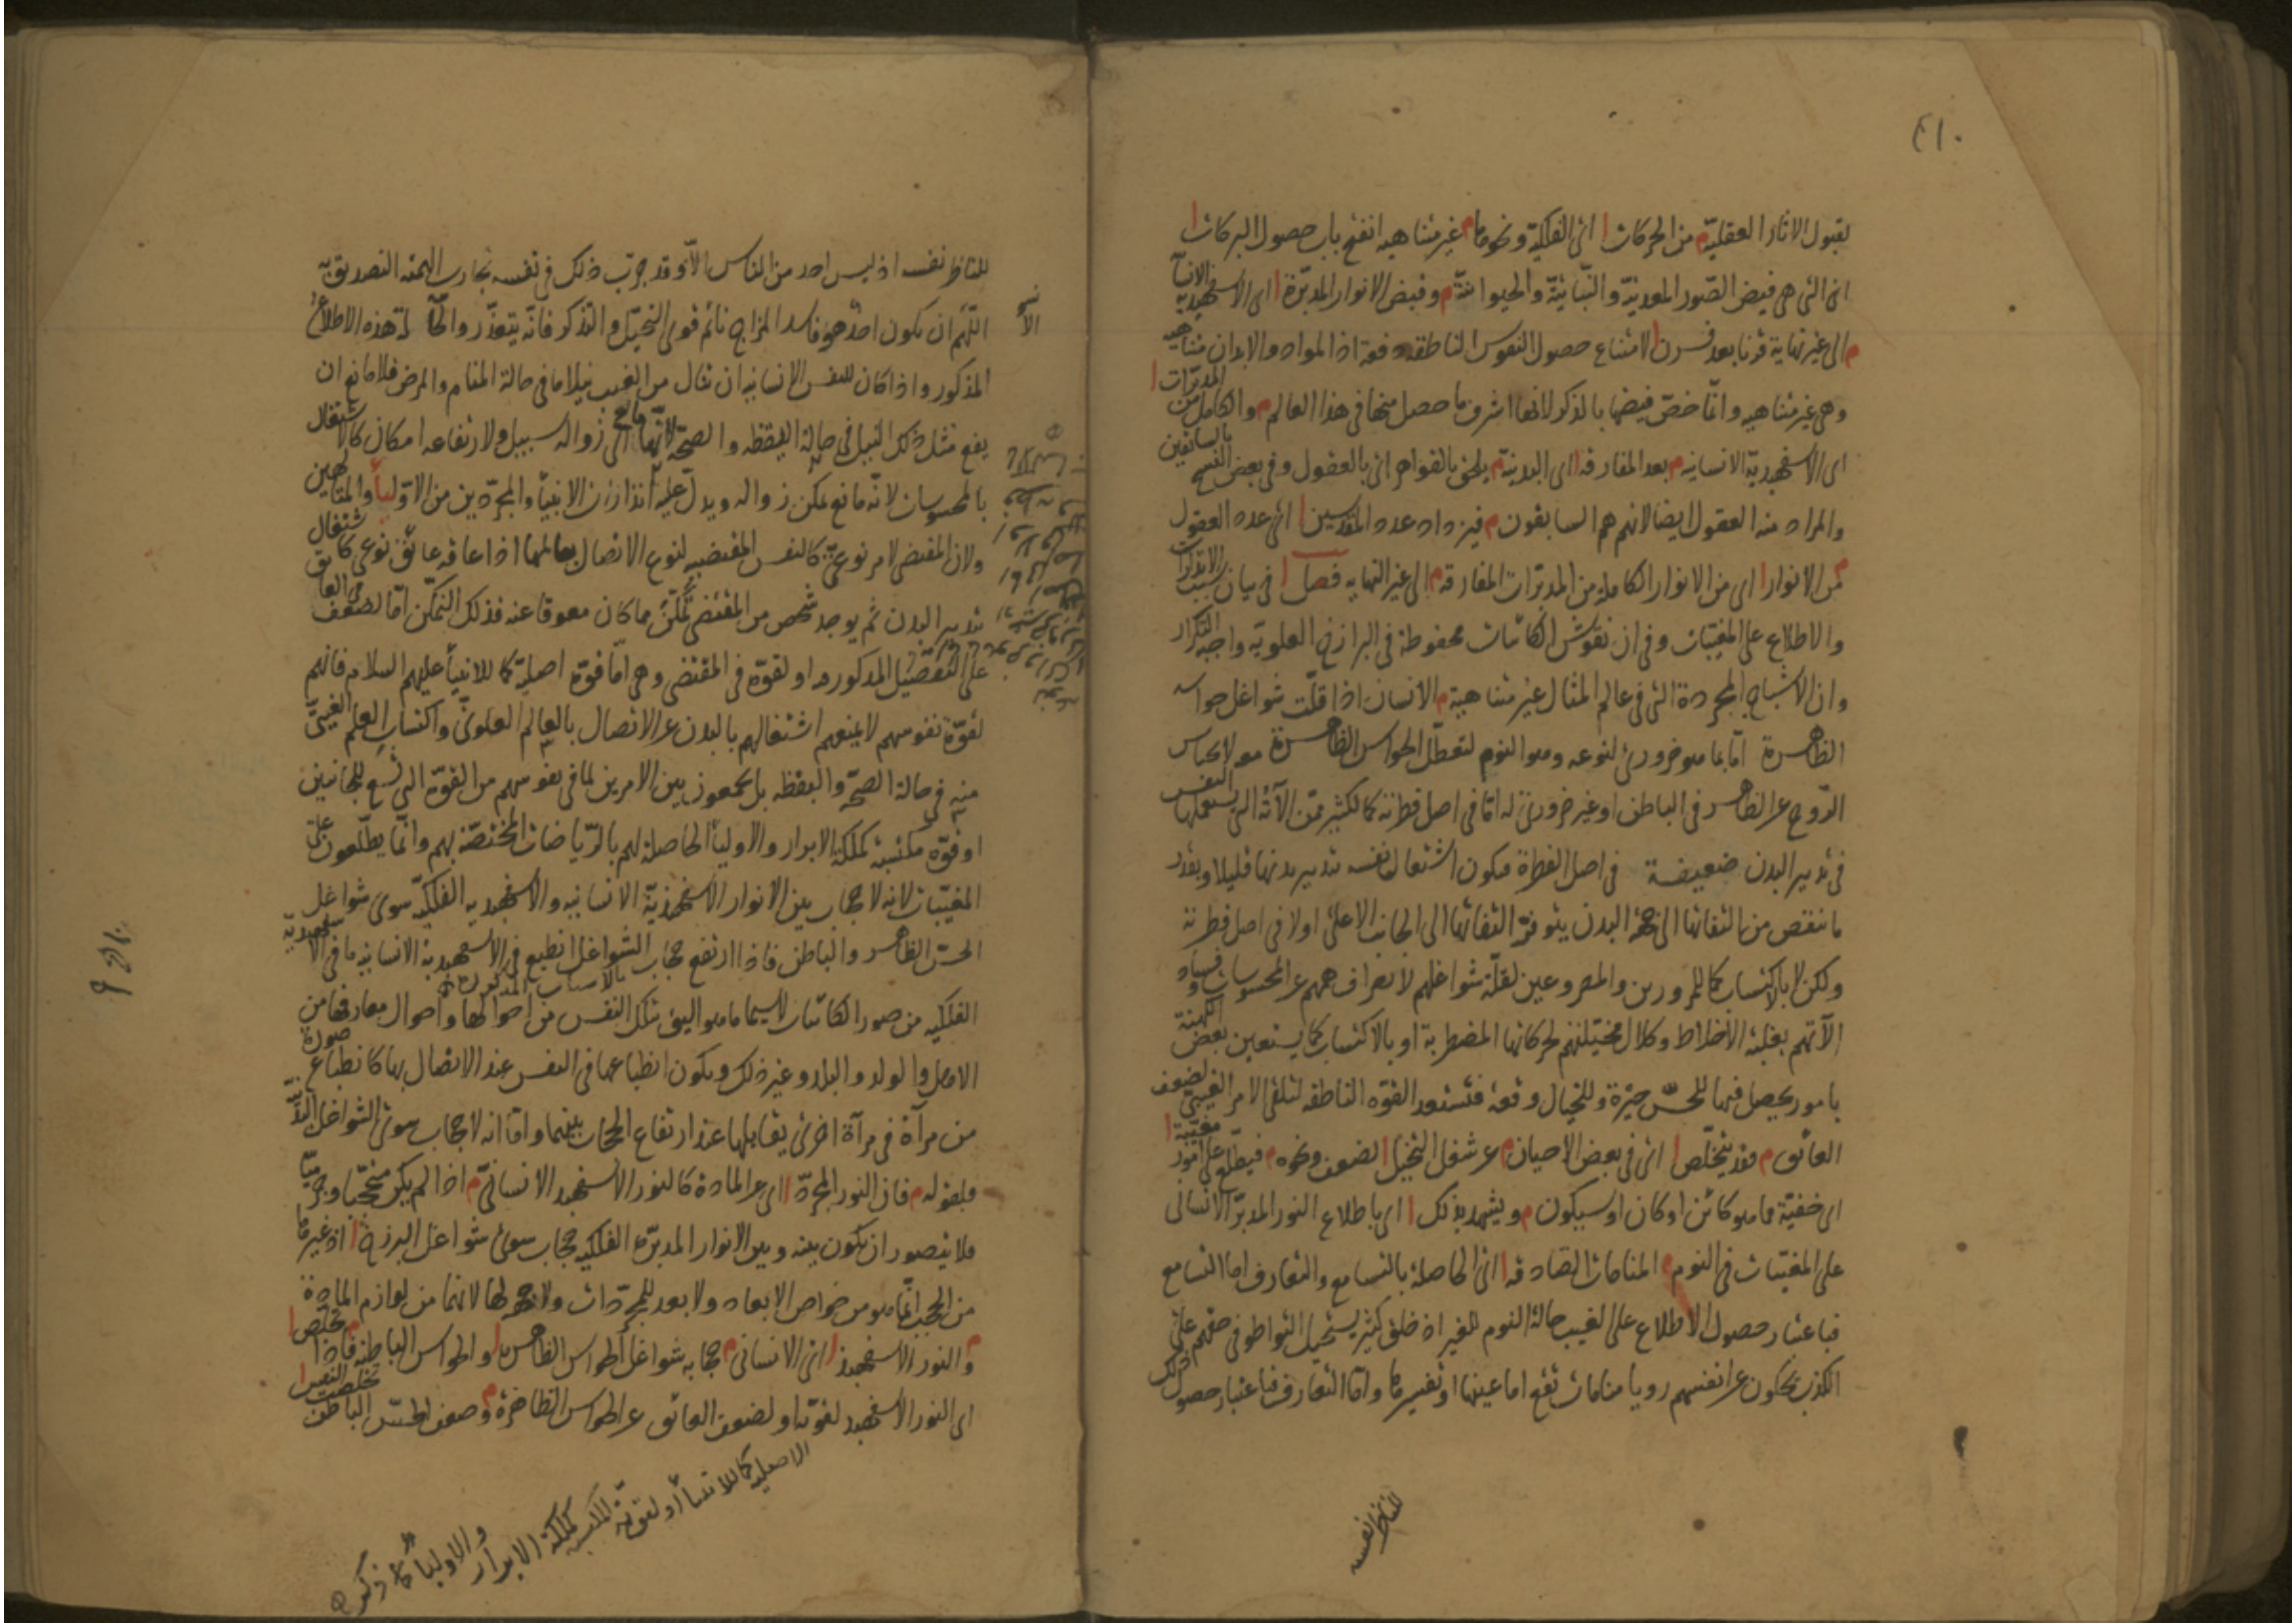 ٤١٠
بقبول الاثار العقلية م من الحركات ا اى الفلكية ونحوها م غير متناهيه انفتح باب حصول البركات ا
اى التى هى فيض الصور المعدنية والنباتية والحيوانية م وفيض الانوار المدبرة ا اى الاسفهبدية الانسانية
م الى غير نهاية قرنا بعد قرن ا لامتناع حصول النفوس الناطقه دفعة اذ المواد والابدان متناهيه
وهى غير متناهيه وانما خص فيضها بالذكر لانها اشرف ما حصل منها فى هذا العالم م والكامل من المدبرات ا
اى الاسفهبدية الانسانيه م بعد المفارقه ا اى البدنية م يلحق بالقواهر اى بالعقول وفى بعض النسخ بالسابقين
والمراد منه العقول ايضا لانهم هم السابقون م فيزداد عدد المقدسين ا اى عدد العقول
م من الانوار ا اى من الانوار الكاملة من المدبرات المفارقه م الى غير النهايه فصل ا فى بيان سبب الانذارات
والاطلاع على المغيبات وفى ان نقوش الكائنات محفوظة فى البرازخ العلويه واجبة التكرار
وان الاشباح المجردة التى فى عالم المثال غير متناهية م الانسان اذا قلت شواغل حواسه
الظاهرة اما بما هو ضرورى لنوعه وهو النوم لتعطل الحواس الظاهرة معه لانحباس
الروح عن الظاهر فى الباطن او غير ضرورى له اما فى اصل فطرته كما لكثير ممن الآته التى يستعملها النفس
فى تدبير البدن ضعيفة فى اصل الفطرة فيكون اشتغال نفسه بتدبير بدنها قليلا وبقدر
ما ننقص من التفاتها الى جهة البدن يتوفر التفاتها الى الجانب الاعلى اولا فى اصل فطرته
ولكن لا بالاكتساب كما للممرورين والمصروعين لقلة شواغلهم لانصراف هممهم عن المحسوسات وفساد
الآتهم بغلبة الاخلاط وكلال مخيلتهم لحركاتها المضطربة او بالاكتساب كما يستعين بعض الكهنة
بامور يحصل فيها للحس حيرة وللخيال وقفة فتستعد القوة الناطقه لتلقى الامر الغيبى لضعف
العائق م فقد يتخلص ا اى فى بعض الاحيان م عن شغل التخيل ا لضعف ونحوه م فيطلع على امور مغيبة ا
اى خفية مما هو كائن او كان او سيكون م ويشهد بذلك ا اى باطلاع النور المدبر الانسانى
على المغيبات فى النوم م المنامات الصادقه ا اى الحاصلة بالتسامع والتعارف اما التسامع
فباعتبار حصول الاطلاع على الغيب حالة النوم للغير اذ خلق كثير يستحيل التواطو فى حقهم على
الكذب يحكون عن انفسهم رويا منامات تقع اما عينها او تفسيرها واما التعارف فباعتبار حصول ذلك
للناظر نفسه
للناظر نفسه اذ ليس احد من الناس الا وقد جرب ذلك فى نفسه تجارب الهمته التصديق به
اللهم ان يكون احدهم فاسد المزاج نائم قوى التخيل والتذكر فانه يتعذر والحالة هذه الاطلاع
المذكور واذا كان للنفس الانسانيه ان تنال من الغيب نيلا ما فى حالة المنام والمرض فلا مانع ان
يقع مثل ذلك النيل فى حالة اليقظه والصحة الا مانع الى زواله سبيل ولارتفاعه امكان كالاشتغال
بالمحسوسات لانه مانع يمكن زواله ويدل عليه انذارات الانبيا والمجردين من الاوليا والمتالهين
ولان المقتضى لامر نوعى كالنفس المقتضيه لنوع الاتصال بعالمها اذا عاقه عائق نوعى كاشتغال
تدبير البدن ثم يوجد شخص من المقتضى تمكن مما كان معوقا عنه فذلك التمكن اما لضعف فى العائق
على التفصيل المذكور او لقوة فى المقتضى وهى اما قوة اصلية كما للانبيا عليهم السلام فانهم
لقوة نفوسهم لا يمنعهم اشتغالهم بالبدن عن الاتصال بالعالم العلوى واكتساب العلم الغيبى
منه فى حالة الصحة واليقظه بل يجمعون بين الامرين لما فى نفوسهم من القوة التى تسع للجانبين
او قوة مكتسبة كملكة الابرار والاوليا الحاصلة لهم بالرياضات المختصة بهم وانما يطلعون على
المغيبات لانه لا حجاب بين الانوار الاسفهبذية الانسانيه والاسفهبديه الفلكية سوى شواغل
الحس الظاهر والباطن فاذا ارتفع حجاب الشواغل انطبع فى الاسفهبدية الانسانيه ما فى الاسفهبدية
بالاسباب المذكورة
الفلكيه من صور الكائنات لا سيما ما هو اليق بتلك النفس من احوالها واحوال معارفها من
الاهل والولد والبلد وغير ذلك ويكون انطباعها فى النفس عند الاتصال بها كانطباع صورة
من مرآة فى مرآة اخرى يقابلها عند ارتفاع الحجاب بينهما واما انه لا حجاب سوى الشواغل البدنية
فلقوله م فان النور المجرد ا اى عن المادة كالنور الاسفهبد الانسانى م اذا لم يكن متحيزا وجرميا
فلا يتصور ان يكون بينه وبين الانوار المدبرة الفلكيه حجاب سوى شواغل البرزخ ا اذ غيرها
من الحجب انما هو من خواص الابعاد ولا بعد للمجردات ولا جهة لها لانهما من لوازم المادة
م والنور الاسفهبذ ا اى الانسانى م حجابه شواغل الحواس الظاهرة ا والحواس الباطنه فاذا م تخلص ا
اى النور الاسفهبد لقوته او لضعف العائق عن الحواس الظاهرة م وضعف الحس الباطن تخلصت النفس ا
الاصلية كما للانبيا او لقوته المكتسبة كملكة الابرار
والاوليا كما ذكر